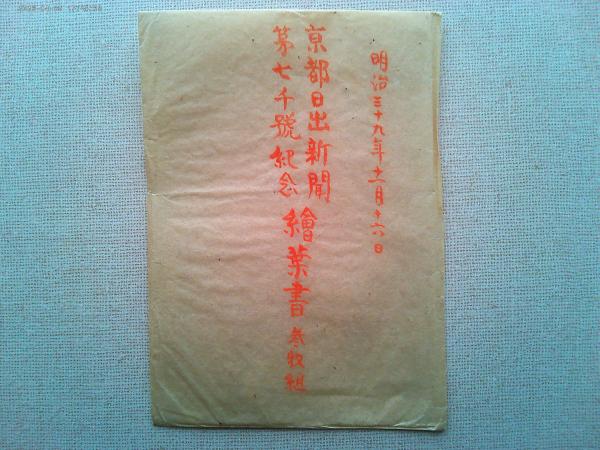 明治三十九年十一月十六日
京都日出新聞
第七千號紀念
繪葉書 参枚組